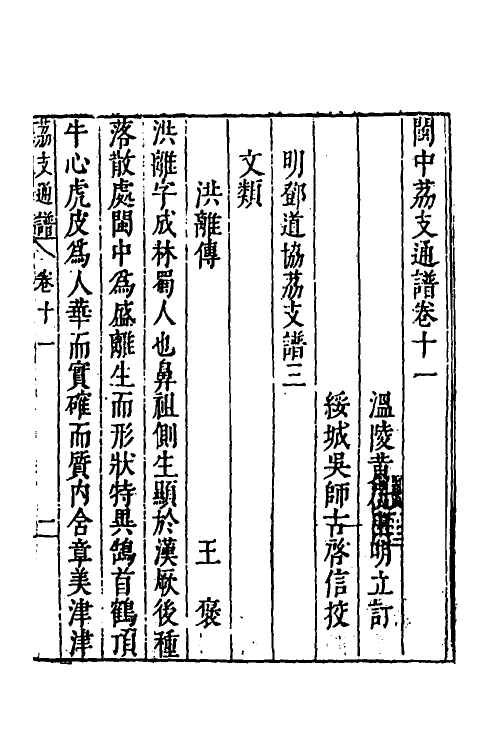 閩中荔支通譜卷十一
溫陵黃履康明立訂
綏城吳師古啓信挍
明鄧道協荔支譜三
文類
洪離傳　王襃
洪離字成林蜀人也鼻祖側生顯於漢厥後種
落散處閩中爲盛離生而形狀特異鵠首鶴頂
牛心虎皮爲人華而實確而質内含章美津津
荔支通譜　卷十一　二